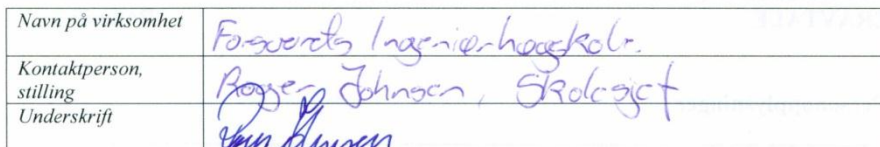 Navn på virksomhet
Forsvarets Ingeniørhøgskole.
Kontaktperson,
stilling
Roger Johnsen, Skolesjef
Underskrift